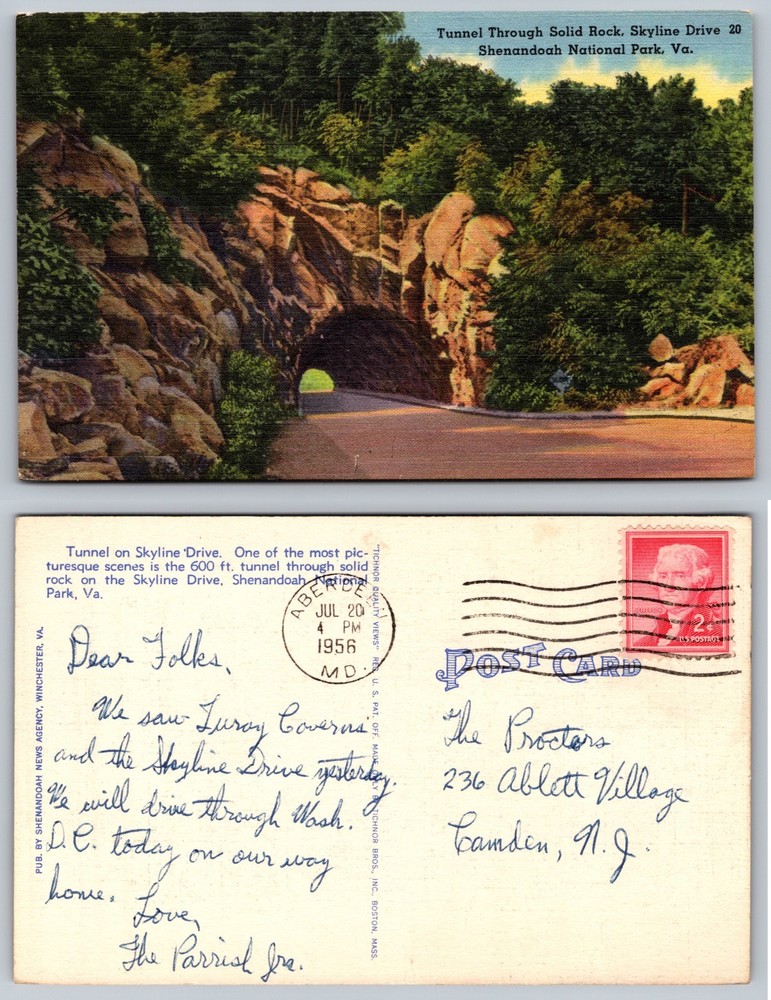 Tunnel Through Solid Rock, Skyline Drive 20
Shenandoah National Park, Va.
Tunnel on Skyline Drive. One of the most pic-
turesque scenes is the 600 ft. tunnel through solid
rock on the Skyline Drive, Shenandoah National
Park, Va.
ABERDEEN
JUL 20
4 PM
1956
MD.
2¢
U.S. POSTAGE
POST CARD
Dear Folks,
We saw Luray Caverns
and the Skyline Drive yesterday.
We will drive through Wash.
D.C. today on our way
home.
Love,
The Parrish Jrs.
The Proctors
236 Ablett Village
Camden, N.J.
PUB. BY SHENANDOAH NEWS AGENCY, WINCHESTER, VA.
"TICHNOR QUALITY VIEWS" REG. U. S. PAT. OFF. MADE ONLY BY TICHNOR BROS., INC. BOSTON, MASS.